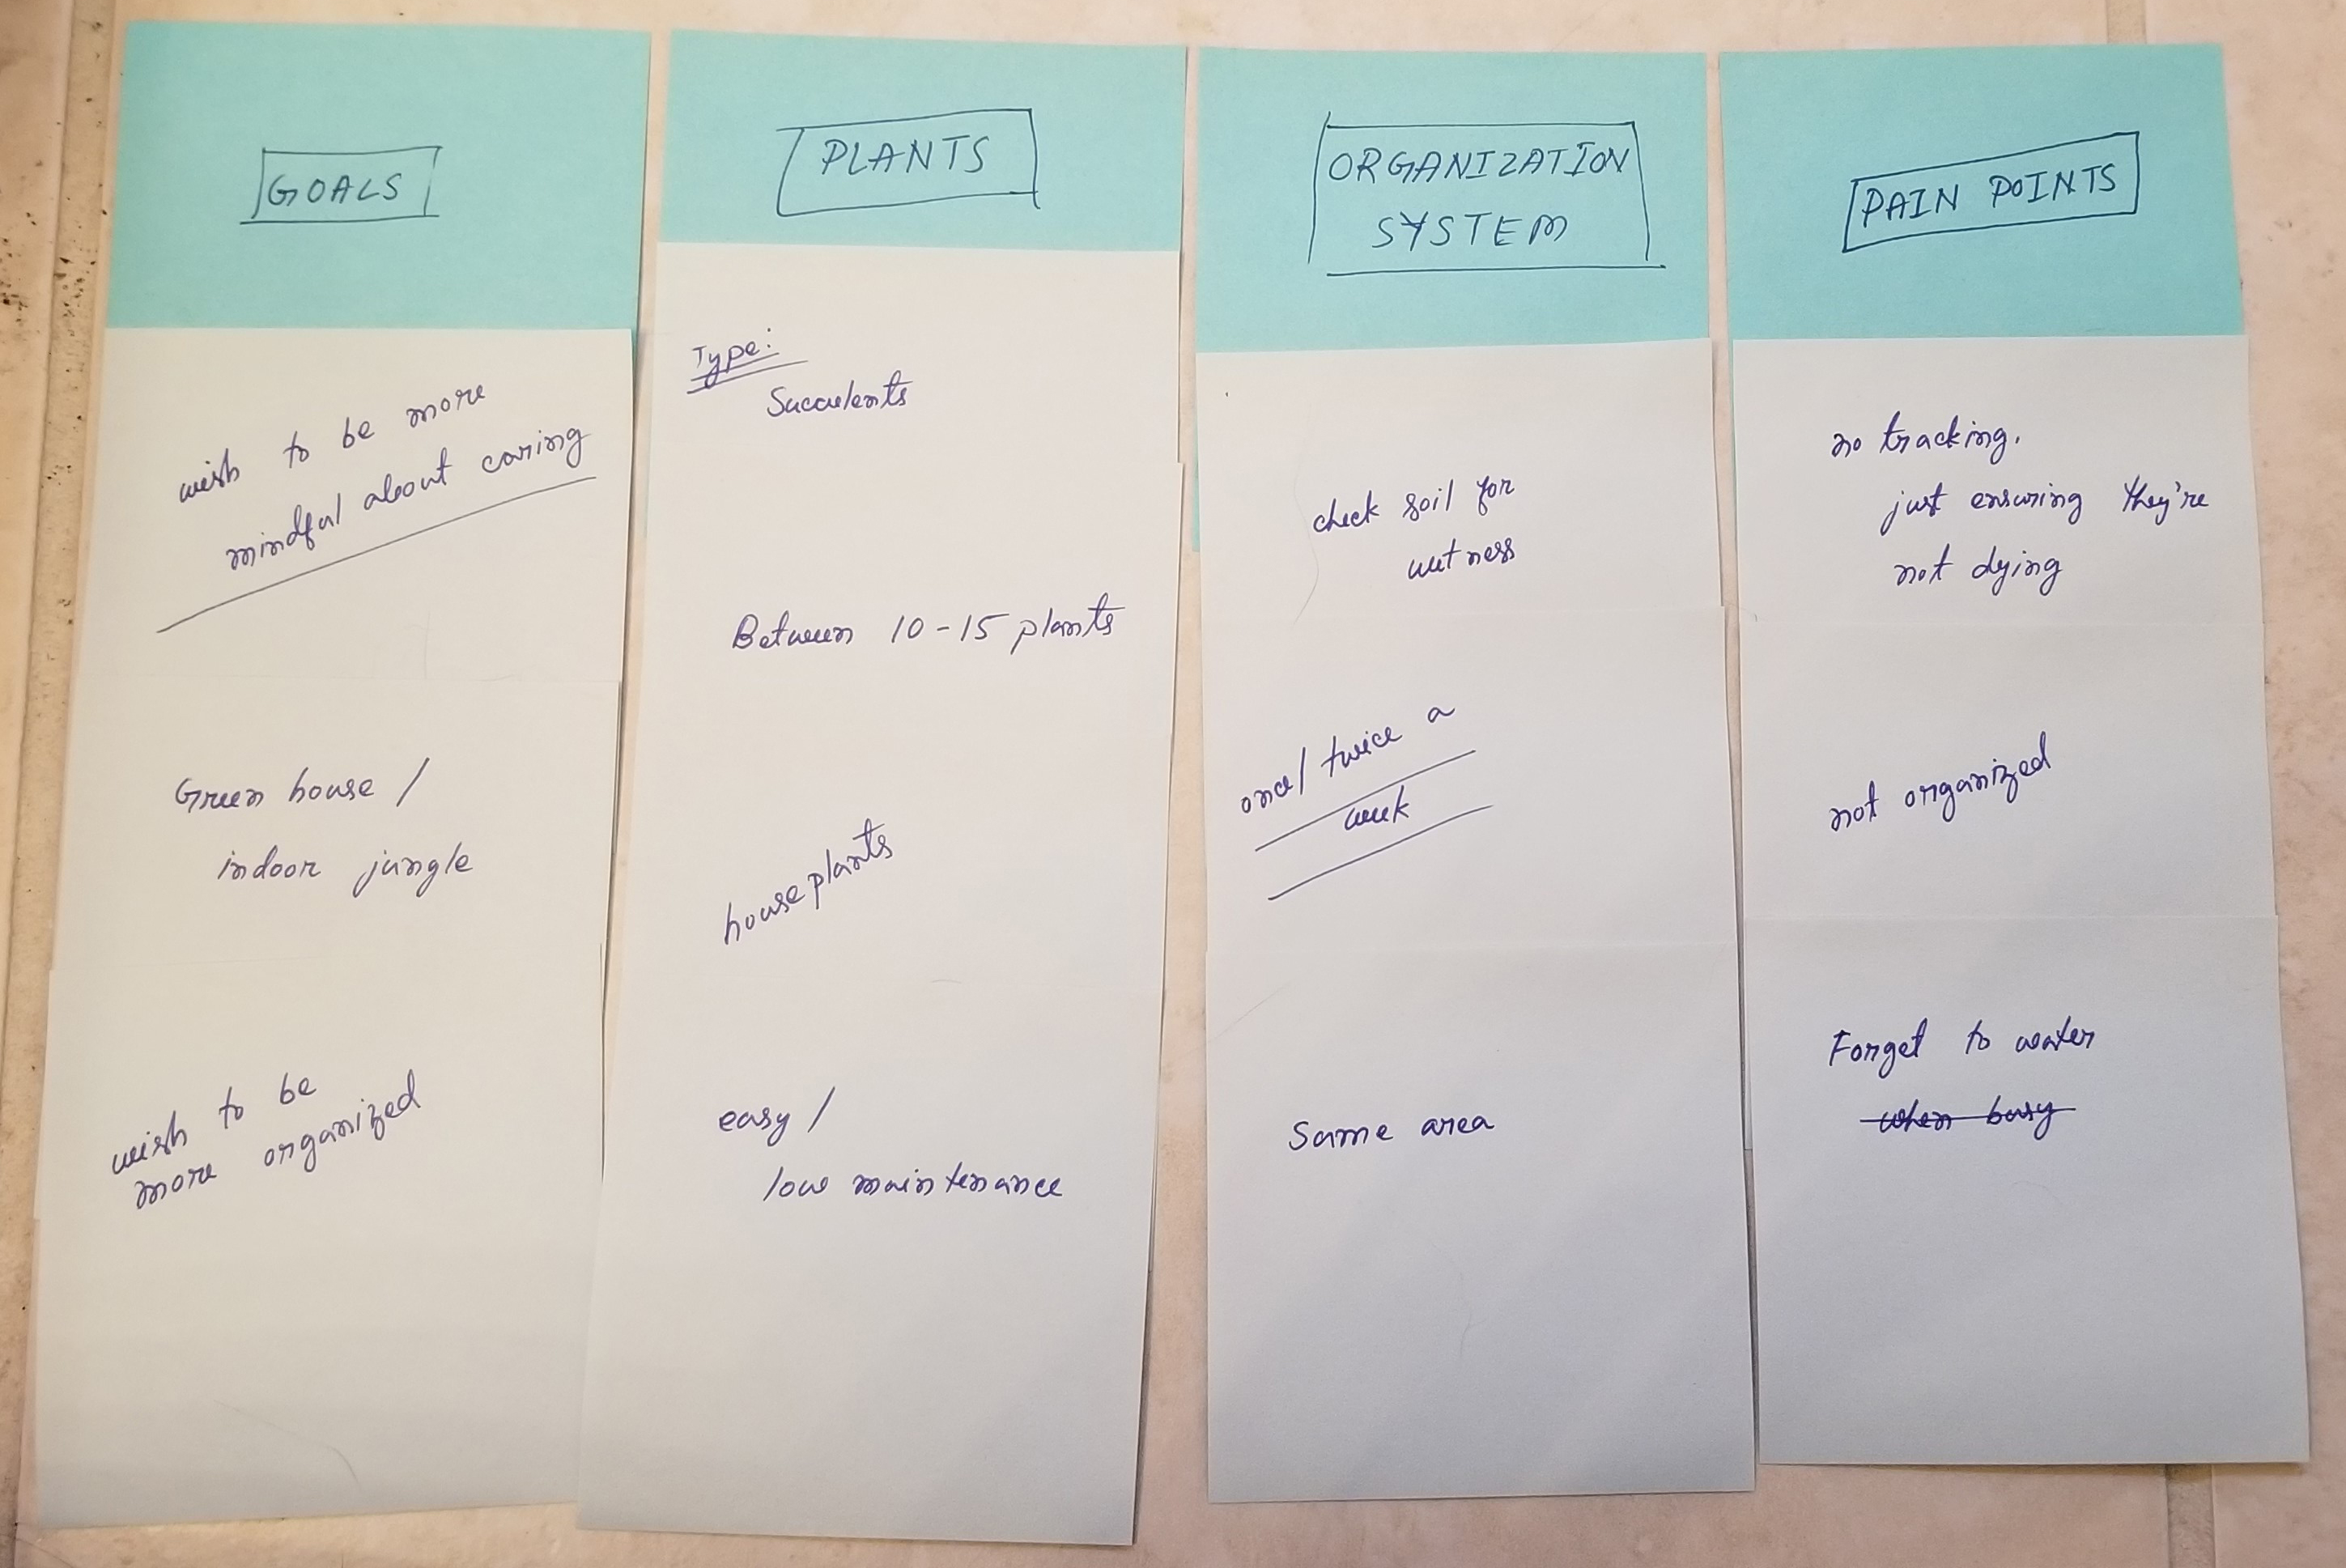 GOALS
wish to be more
mindful about caring
Green house /
indoor jungle
wish to be
more organized
PLANTS
Type:
Succulents
Between 10-15 plants
house plants
easy /
low maintenance
ORGANIZATION
SYSTEM
check soil for
wetness
once/ twice a
week
Same area
PAIN POINTS
no tracking.
just ensuring they're
not dying
not organized
Forget to water
when busy